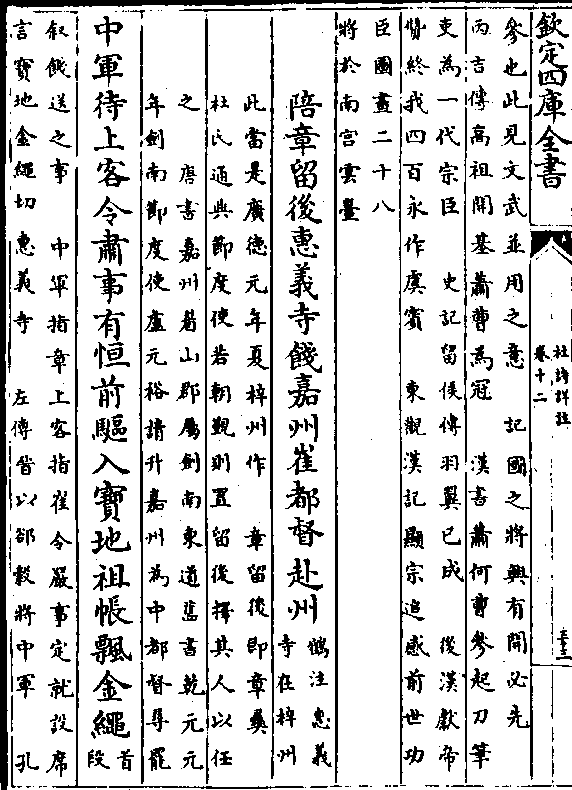 欽定四庫全書
杜詩詳註
卷十二
三十三
參也此見文武並用之意　記國之將興有開必先
丙吉傳髙祖開基蕭曹為冠　漢書蕭何曹參起刀筆
吏為一代宗臣　史記留侯傳羽翼已成　後漢獻帝
贊終我四百永作虞賓　東觀漢記顯宗追感前世功
臣圖畫二十八
將於南宫雲臺
陪章留後惠義寺餞嘉州崔都督赴州
鶴注惠義
寺在梓州
此當是廣徳元年夏梓州作　章留後即章彛
杜氏通典節度使若朝覲則置留後擇其人以任
之　唐書嘉州眉山郡屬劍南東道舊書乾元元
年劍南節度使盧元裕請升嘉州為中都督尋罷
中軍待上客令肅事有恒前驅入寶地祖帳飄金繩
首
段
叙餞送之事　中軍指章上客指崔令嚴事定就設席
言寶地金繩切惠義寺　左傳晉以郤縠將中軍　孔